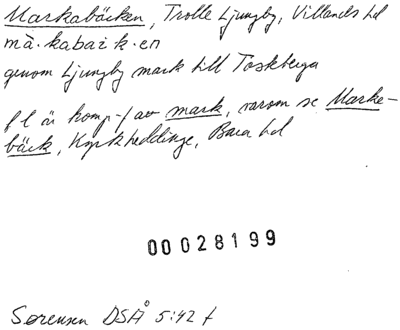 Markabäcken, Trolle Ljungby, Villands hd
mà·kabaẹk·en
genom Ljungby mark till Tosteberga
f l är komp-f av mark, varom se Marke-
bäck, Kyrkheddinge, Bara hd
00028199
Sørensen DSÅ 5:42 f